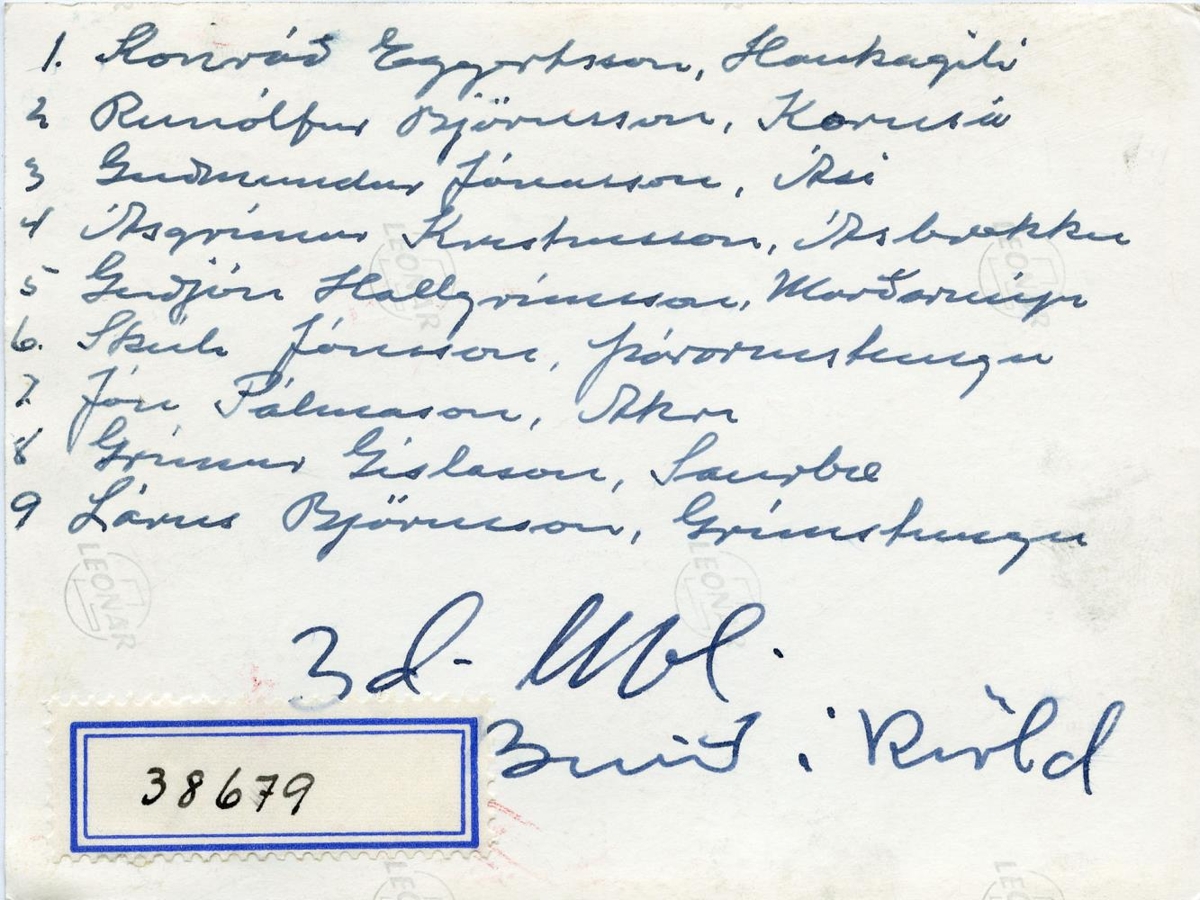 1. Konráð Eggertsson, Haukagili
2 Runólfur Björnsson, Kornsá
3 Guðmundur Jónasson, Ási
4 Ásgrímur Kristinsson, Ásbrekku
5 Guðjón Hallgrímsson, Marðarnúpi
6. Skúli Jónsson, Þórormstungu
7 Jón Pálmason, Akri
8 Grímur Gíslason, Saurbæ
9 Lárus Björnsson, Grímstungu
3 d. Mbl.
í kvöld
38679
LEONAR
LEONAR
LEONAR
LEONAR